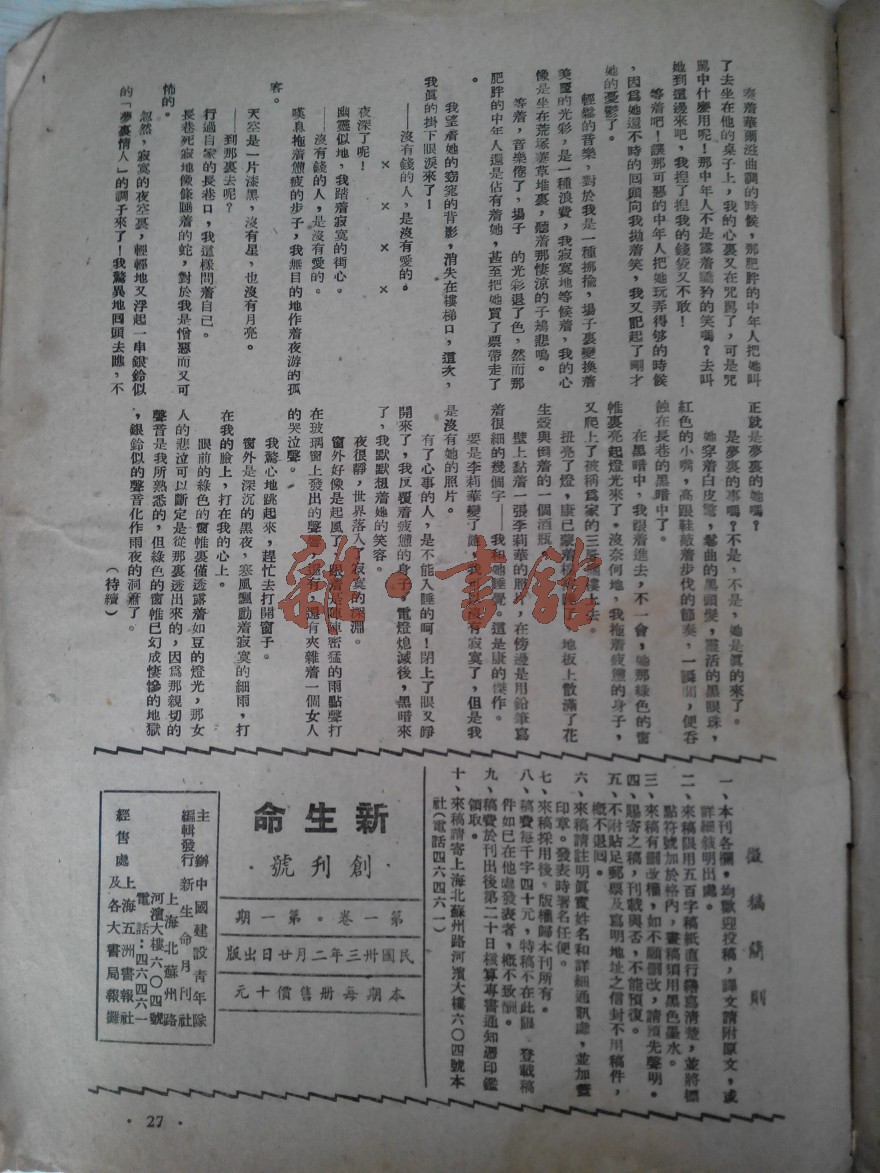 奏着華爾滋曲調的時候，那肥胖的中年人把她叫
了去坐在他的桌子上，我的心裏又在咒罵了，可是咒
罵中什麼用呢！那中年人不是露着驕矜的笑嗎？去叫
她到這邊來吧，我揑了揑我的錢袋又不敢！
等着吧！讓那可惡的中年人把她玩弄得够的時候
，因爲她還不時的回頭向我拋着笑，我又記起了剛才
她的憂鬱了。
輕鬆的音樂，對於我是一種揶揄，揚子裏變換着
美麗的光彩，是一種浪費，我寂寞地等候着，我的心
像是坐在荒塚寨草堆裏，聽着那悽涼的子鳩悲鳴。
等着，音樂倦了，揚子 的光彩退了色，然而那
肥胖的中年人還是佔有着她，甚至把她買了票帶走了
。
我望着她的窈窕的背影，消失在樓梯口，這次，
我眞的掛下眼淚來了！
——沒有錢的人，是沒有愛的。
× × × ×
夜深了呢！
幽靈似地，我踏着寂寞的街心。
——沒有錢的人，是沒有愛的。
嘆息拖着憊疲的步子，我無目的地作着夜游的孤
客。
天空是一片漆黑，沒有星，也沒有月亮。
——到那裏去呢？
行過自家的長巷口，我這樣問着自己。
長巷死寂地像條睡着的蛇，對於我是憎惡而又可
怖的。
忽然，寂寞的夜空裏，輕輕地又浮起一串銀鈴似
的「夢裏情人」的調子來了！我驚異地回頭去瞧，不
正就是夢裏的她嗎？
是夢裏的事嗎？不是，不是，她是眞的來了。
她穿着白皮鞋，鬈曲的黑頭髮，靈活的黑眼珠，
紅色的小嘴，高跟鞋敲着步伐的節奏，一瞬間，便吞
蝕在長巷的黑暗中了。
在黑暗中，我跟着進去，不一會，她那綠色的窗
帷裏亮起燈光來了。沒奈何地，我拖着疲憊的身子，
又爬上了被稱爲家的三層閣樓上去。
扭亮了燈，康已蒙着被睡熟了，地板上散滿了花
生殼與倒着的一個酒瓶。
壁上黏着一張李莉華的照片，在傍邊是用鉛筆寫
着很細的幾個字——我和她睡覺。這是康的傑作。
要是李莉華變了她，我可以沒有寂寞了，但是我
是沒有她的照片。
有了心事的人，是不能入睡的呵！閉上了眼又睜
開來了，我反覆着疲憊的身子，電燈熄滅後，黑暗來
了，我默默想着她的笑容。
夜很靜，世界落入了寂寞的深淵。
窗外好像是起風了，跟着是陣陣密猛的雨點聲打
在玻璃窗上發出的聲響，還有，還有夾雜着一個女人
的哭泣聲。
我驚心地跳起來，趕忙去打開窗子。
窗外是深沉的黑夜，寒風飄動着寂寞的細雨，打
在我的臉上，打在我的心上。
眼前的綠色的窗帷裏僅透露着如豆的燈光，那女
人的悲泣可以斷定是從那裏透出來的，因爲那親切的
聲音是我所熟悉的，但綠色的窗帷已幻成悽慘的地獄
，銀鈴似的聲音化作雨夜的洞簫了。
（待續）
徵稿簡則
一、本刊各欄，均歡迎投稿，譯文請附原文，或
詳細敍明出處。
二、來稿限用五百字稿紙直行繕寫清楚，並將標
點符號加於格內，畫稿須用黑色墨水。
三、來稿有刪改權，如不願刪改，請預先聲明。
四、賜寄之稿，刊載與否，不能預復。
五、不附貼足郵票及寫明地址之信封不用稿件，
概不退回。
六、來稿請註明眞實姓名和詳細通訊處，並加蓋
印章。發表時署名任便。
七、來稿採用後，版權歸本刊所有。
八、稿費每千字四十元，特稿不在此限。登載稿
件如已在他處發表者，概不致酬。
九、稿費於刊出後第二十日核算專書通知憑印鑑
領取。
十、來稿請寄上海北蘇州路河濱大樓六〇四號本
社（電話四六四六一）
新生命
·創刊號·
第一卷·第一期
民國卅三年二月廿日出版
本期每册售價十元
主辦 中國建設青年隊
編輯發行 新生命月刊社
上海北蘇州路
河濱大樓六〇四號
電話：四六四六一
經售處 上海五洲書報社
及各大書局報攤
· 27 ·
雜·書館